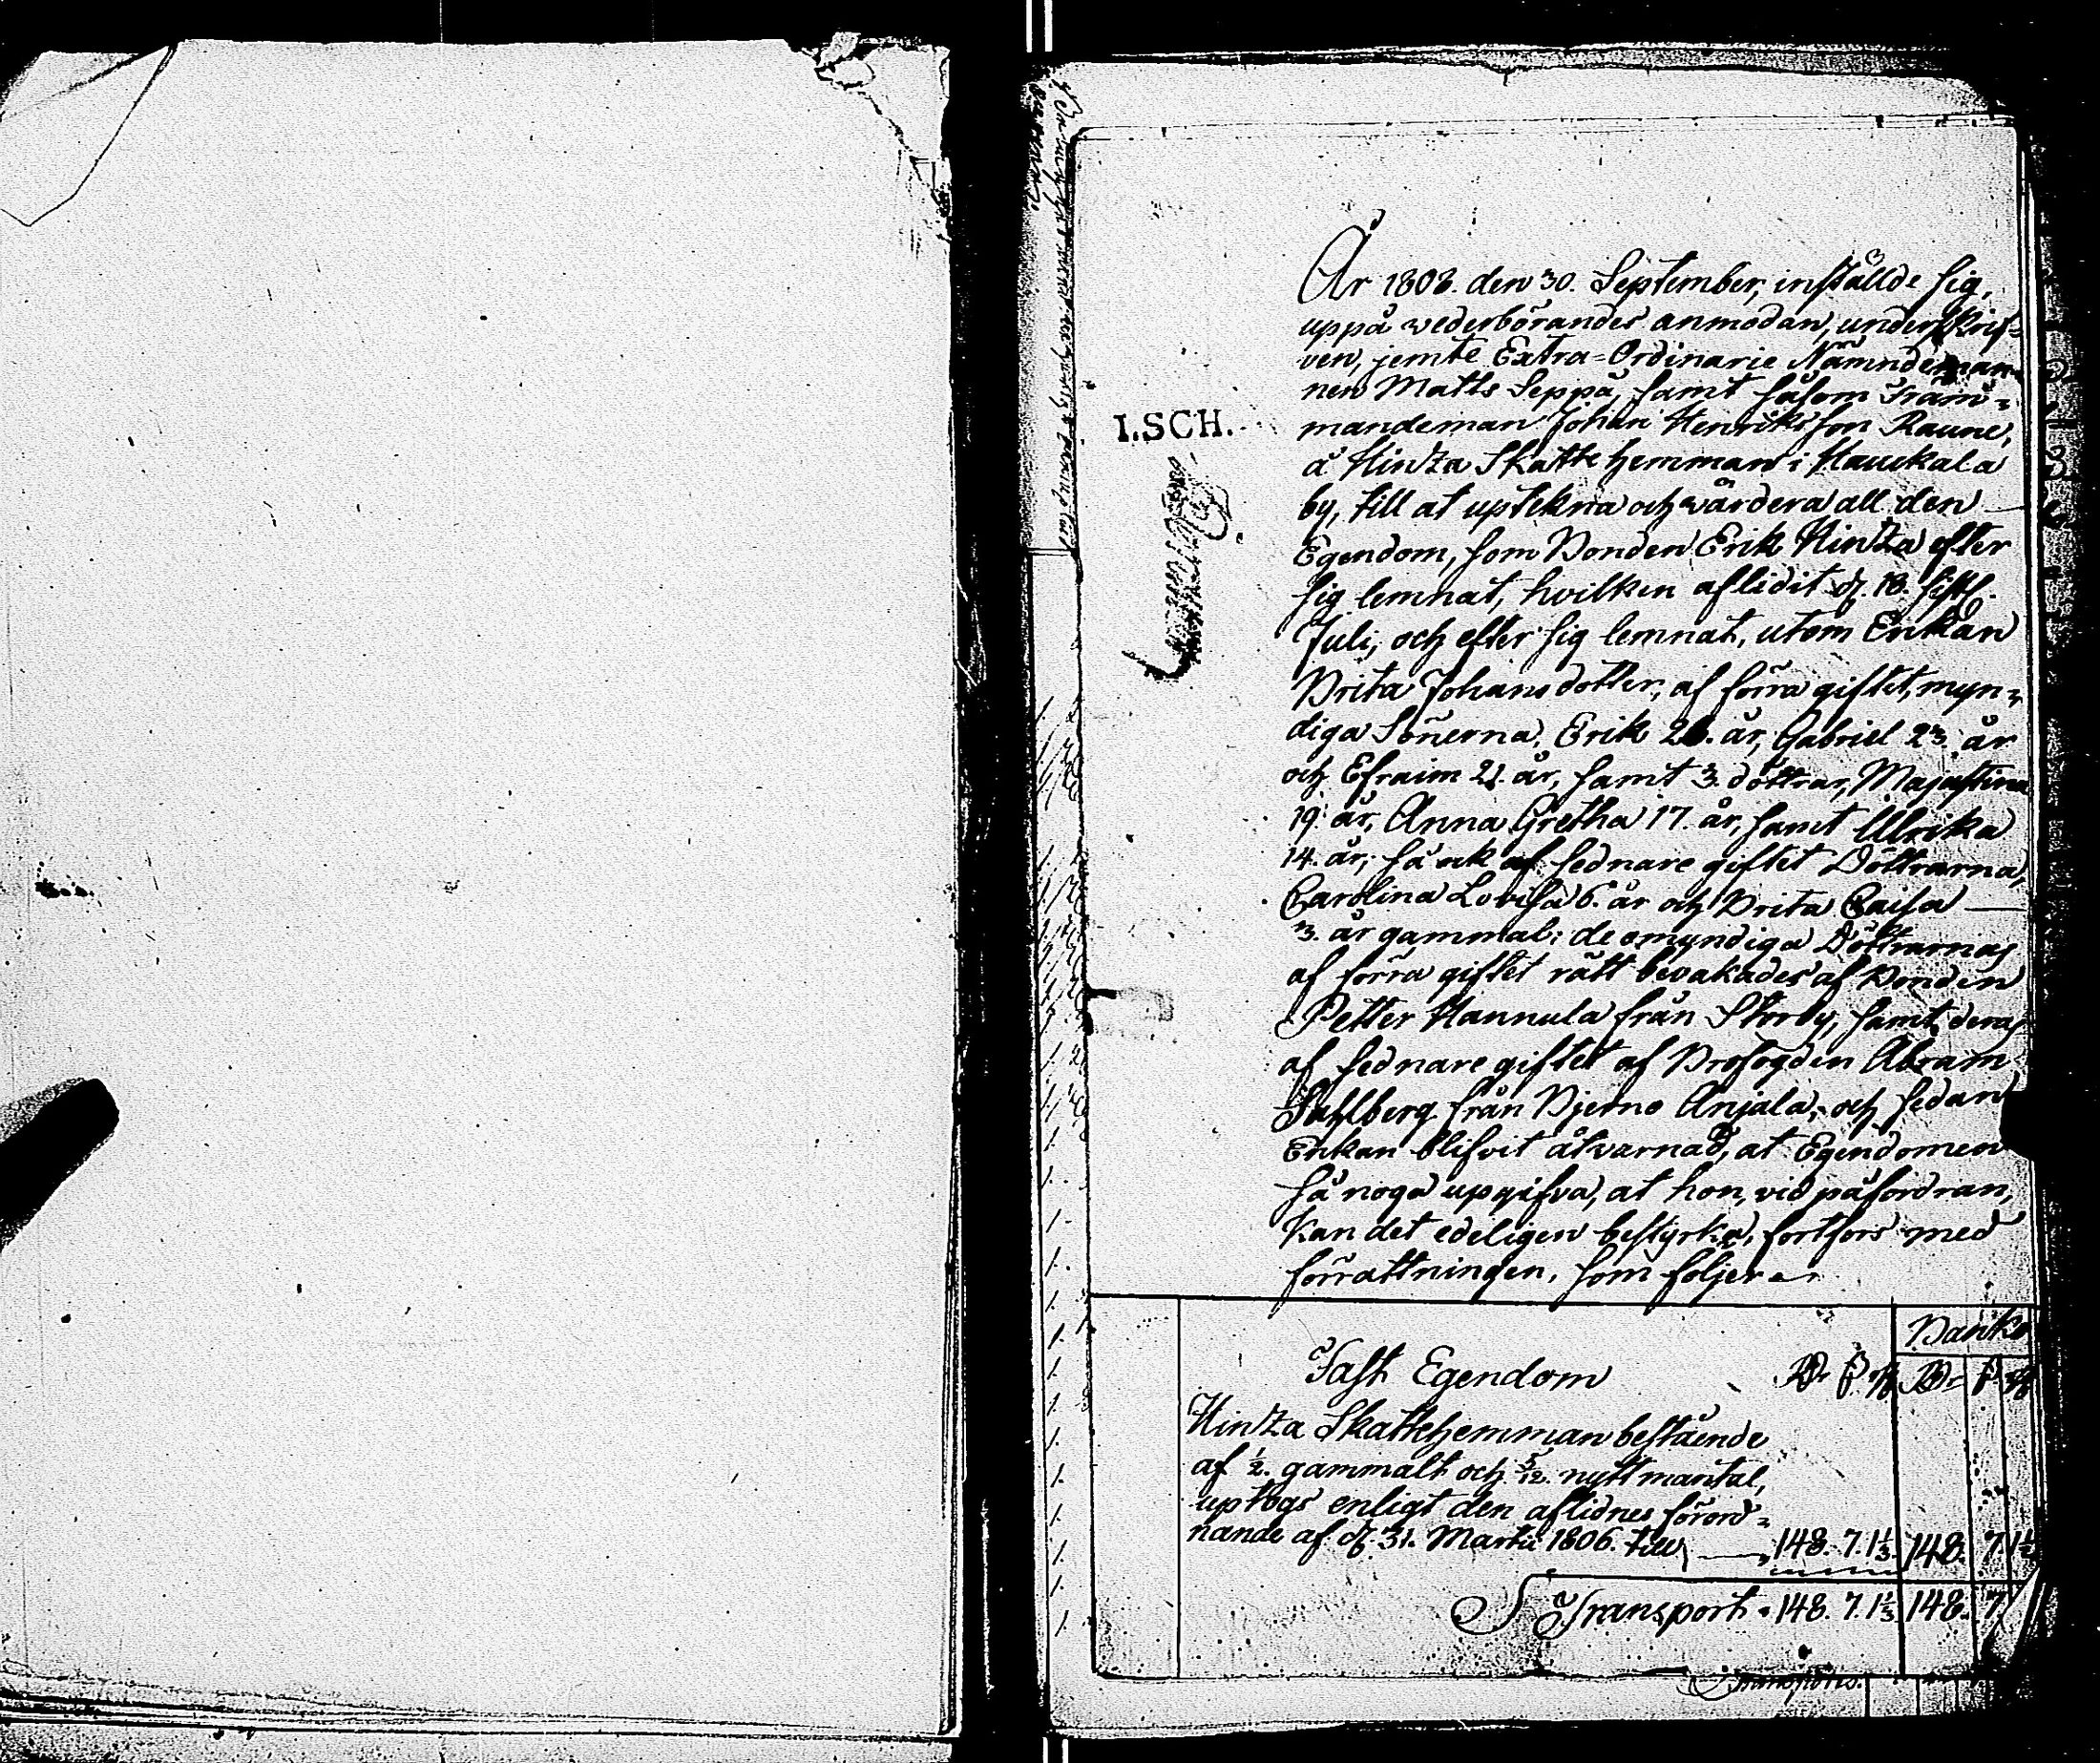 År 1808. den 30. September, inställde sig,
uppå wederbörandes anmodan, underskrif-
ven, jemte Extra-Ordinarie Nämndeman-
nen Matts Seppä, samt såsom
mandeman Johan Henriksson Raune,
I.SCH.
å Hindza Skatte hemman i Hauckala
by, till at uptekna och wärdera all den
Egendom, som Bonden Erik Hindza efter
sig lemnat, hvilken aflidit d. 18. sistl.
Juli, och efter sig lemnat, utom Enkan
Brita Johansdotter, af förra giftet, myn-
diga Sönerna, Erik år, Gabriel 23. år
och Efraim 21. år, samt 3. döttrar, Majastina
19. år, Anna Gretha 17. år, samt Ulrika
14. år, så ock af sednare giftet Döttrarna,
Carolina Lovisa 6. år och Brita Caisa
3. år gammal: de omyndiga Döttrarnas
af förra giftet rätt bevakades af Bonden
Petter Hannula från Storby, samt deras
af sednare giftet af Profogden Abram
Sahlberg från Bjerno Anjala, och sedan
Enkan blifvit åtvarnad, at Egendomen
så noga upgifva, at hon, vid påfordran,
kan det edeligen bestyrka, fortfors med
förrattningen, som foljer
Banko
Fast Egendom
Hindza Skattehemman bestående
af 1/2. gammalt och 5/12. nytt mantal,
uptogs enligt den aflidnes förord-
nande af d. 31. Martii 1806. till 148. 7. 1 1/3. 148. 7.
Transport. 148. 7. 1 1/3 148. 7.